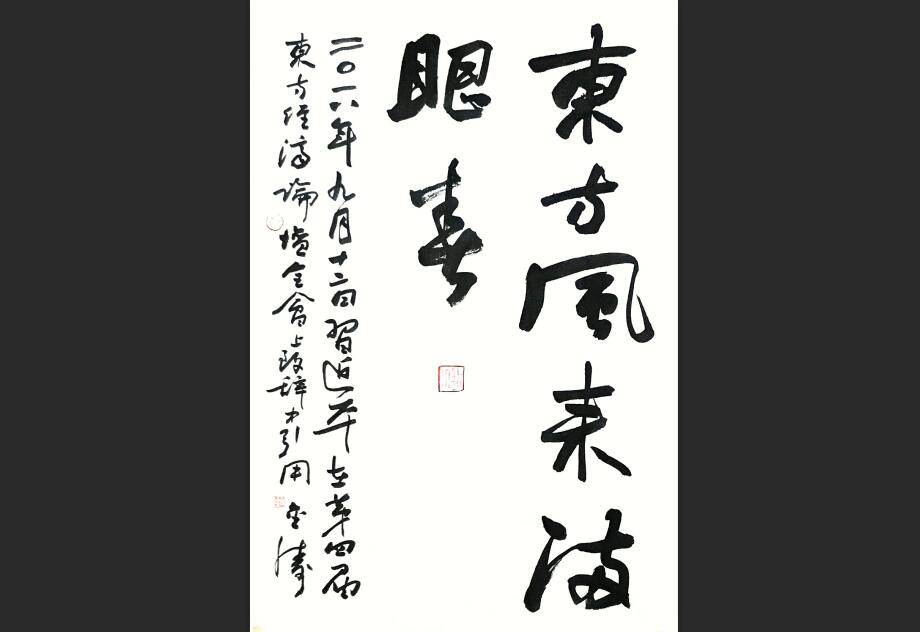 東方風来满
眼春
二〇一八年九月十二日習近平在第四届
東方经济論壇全會上致辞中引用